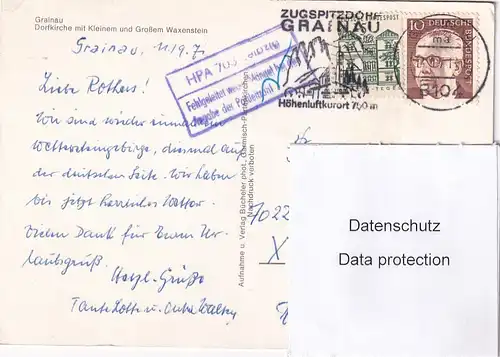 Grainau
Dorfkirche mit Kleinem und Großem Waxenstein
Grainau, 11/9.71
Liebe Rothers!
Wir sind wieder einmal im
Wettersteingebirge, diesmal auf
der deutschen Seite. Wir haben
bis jetzt herrliches Wetter.
Vielen Dank für Euren Ur-
laubsgruß.
Herzl. Grüße
Tante Lotte u. Onkel Walter
HPA 703 Leipzig
Fehlgeleitet wegen
Angabe der Postleitzahl
ZUGSPITZDORF
GRAINAU
Höhenluftkurort 750 m
8104
10 DEUTSCHE BUNDESPOST
Aufnahme u. Verlag Bücheler phot., Garmisch-Partenkirchen
Nachdruck verboten
7022
X
Datenschutz
Data protection